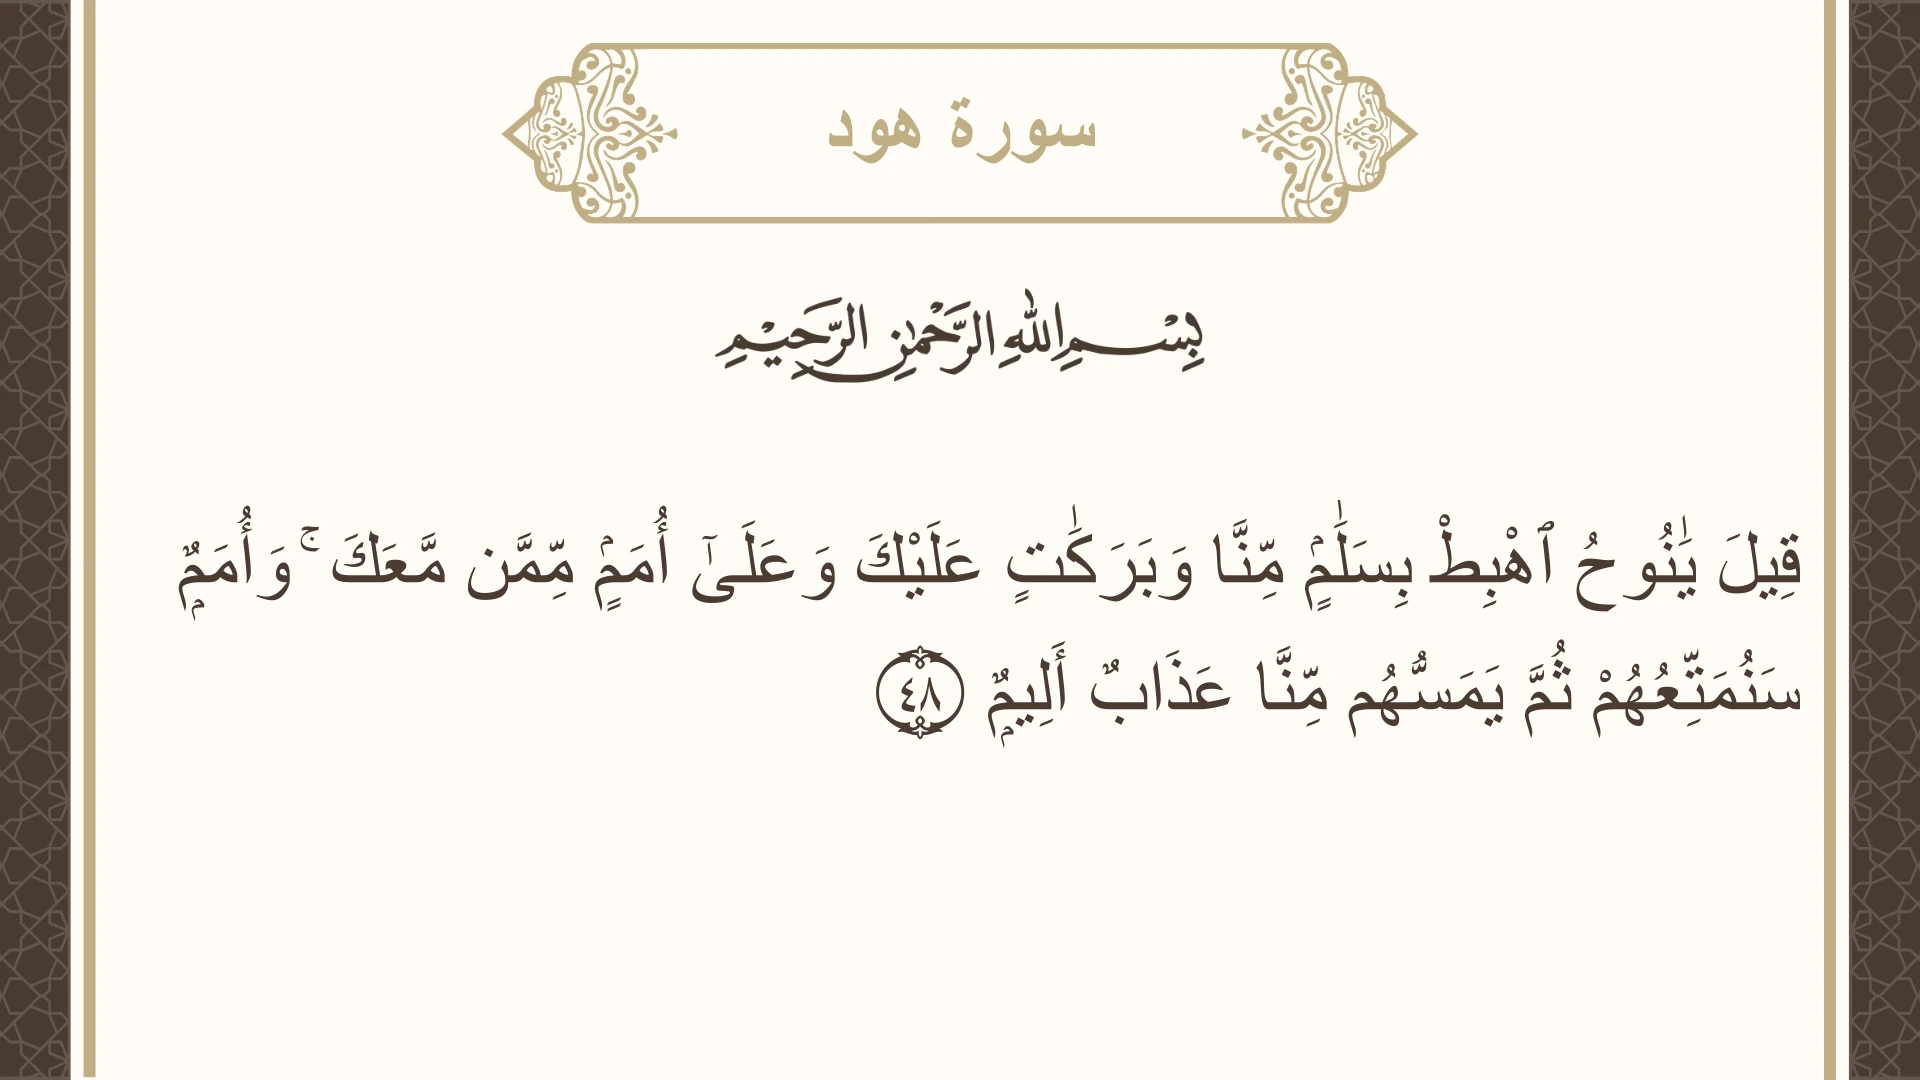 سورة هود
بِسْمِ اللهِ الرَّحْمٰنِ الرَّحِيْمِ
قِيلَ يَٰنُوحُ ٱهْبِطْ بِسَلَٰمٍۢ مِّنَّا وَبَرَكَٰتٍ عَلَيْكَ وَعَلَىٰٓ أُمَمٍۢ مِّمَّن مَّعَكَ ۚ وَأُمَمٌۭ
سَنُمَتِّعُهُمْ ثُمَّ يَمَسُّهُم مِّنَّا عَذَابٌ أَلِيمٌۭ ٤٨